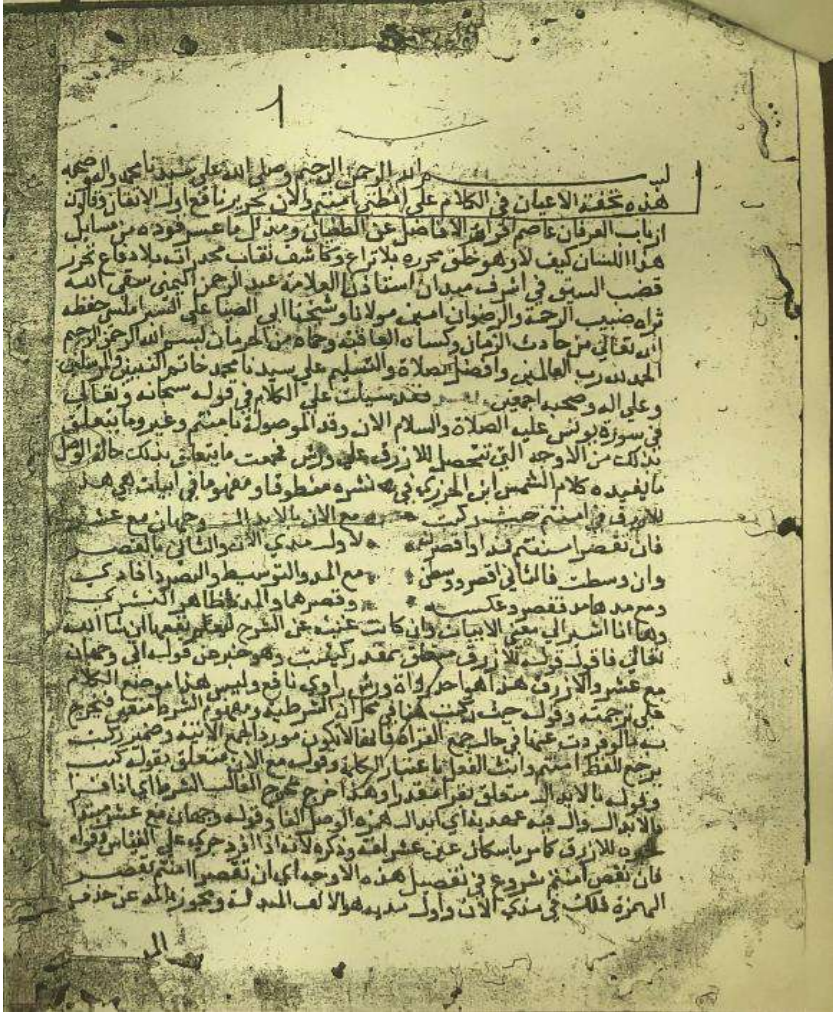 ١
بسم الله الرحمن الرحيم وصلى الله على سيدنا محمد واله وصحبه
هذه تحفة الاعيان في الكلام على لفظتي امنتم والان تحرير نافع اولي الاتقان وفالون
ارباب العرفان عاصم الافاضل عن الطغيان ومذلل ما عسر قوده من مسايل
هذا اللسان كيف لا وهو خلق محرره بلا نزاع وكاشف نقاب مخدراته بلا دفاع محرز
قصب السبق في اشرف ميدان استاذنا العلامة عبد الرحمن اليمني سقى الله
ثراه صبيب الرحمة والرضوان امين مولانا وشيخنا ابي الضيا علي الشبراملسي حفظه
الله تعالى من حادث الزمان وكساه العافية وحماه من الحرمان بسم الله الرحمن الرحيم
الحمد لله رب العالمين وافضل الصلاة والتسليم على سيدنا محمد خاتم النبيين والمرسلين
وعلى اله وصحبه اجمعين فقد سيلت على الكلام في قوله سبحانه وتعالى
في سورة يونس عليه الصلاة والسلام الان وقد الموصولة بامنتم وغير وما يتعلق
بذلك من الاوجه التي تتحصل للازرق على ورش فجمعت ما يتعلق بذلك حالة الوصل
ما يفيده كلام الشمس ابن الجزري في نشره منطوقا ومفهوما في ابيات هي هذه
للازرق في امنتم حيث ركبت مع الان بالابدال وجهان مع عشر
فان تقصر امنتم فمد او اقصر لاولى مدي الان والثاني بالقصر
وان وسطت فالثاني اقصر ووسطن مع المد والتوسيط والقصر ذا فادر
ومع مدها مد فقصر وعكسه وقصرهما والمد ظاهر النشر
وها انا اشير الى معنى الابيات وان كانت غنية عن الشرح ليعم نفعها ان شا الله
تعالى فاقول قوله للازرق متعلق بمقدر كثبت وهو خبر عن قوله الى وجهان
مع عشر والازرق هذا هو احد رواة ورش راوي نافع وليس هذا موضع الكلام
على ترجمته وقوله حيث ركبت هنا في محل ان الشرطية ومفهوم الشرط معتبر فيخرج
به ما لو فردت عنها في حال جمع القراة فانها لا تكون موردا لجمع الاتية وضمير ركبت
يرجع للفظ امنتم وانث الفعل باعتبار الكلمة وقوله مع الان متعلق بقوله ركبت
وقوله بالابدال متعلق بتقرا مقدرا وهذا خرج مخرج الغالب الشرط اي اذا قرا
بالابدال وال فيه عهدية اي ابدال همزة الوصل الفا وقوله وجهان مع عشر مبتدا
خبره للازرق كما مر باسكان عين عشر لغة وذكره لانه اذا افرد جرى على القياس وقوله
فان تقصر امنتم شروع في تفصيل هذه الاوجه اي ان تقصر امنتم بقصر
الهمزة فلك في مدي الان واول مديه هو الالف المبدلة ويجوز بالمد عن حذف
المد